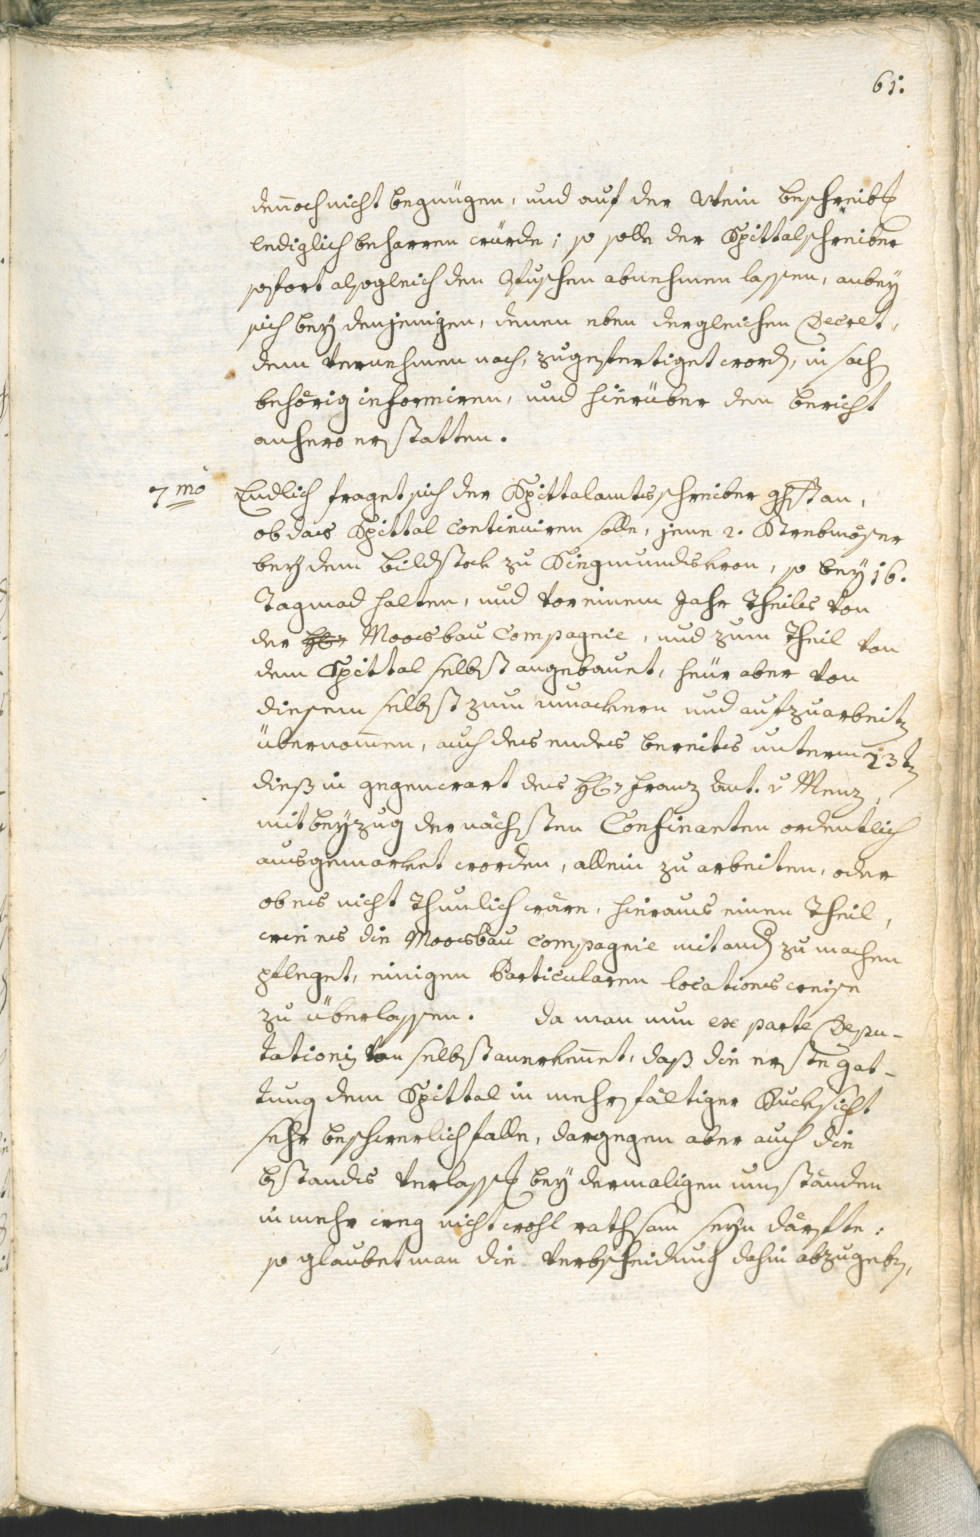 61:
dennoch nicht begnügen, und auf der Wein beschreibg
lediglich beharren würde; so solle der Spittalschreiber
sofort alsogleich den Wuschen abnehmen lassen, anbey
sich bey denjenigen, denen eben dergleichen Decret,
dem Vernehmen nach, zugefertiget word, in sach
behörig informiren, und hierüber den bericht
anhero erstatten.
7mo Endlich fraget sich der Spittalamtsschreiber ghst an,
ob das Spittal continuiren solle, jene 2. Strebmöser
bey dem bildstock zu Siegmundskron, so bey 16.
Tagmad halten, und vor einem Jahr Theils von
der Moosbau Compagnie, und zum Theil von
dem Spittal selbst angebauet, heür aber von
diesem selbst zum umackern und aufzuarbeitn
übernommen, auch des endes bereits unterm 23tn
dieß in gegenwart des Franz Ant. v Menz,
mit beyzug der nächsten Confinanten ordentlich
ausgemarket worden, allein zu arbeiten, oder
ob es nicht Thunlich wäre, hieraus einen Theil,
wie es die Moosbau Compagnie mit and zu machen
pfleget, einigen Particularen locations weise
zu überlassen. Da man nun ex parte Depu-
tationis von selbst anerkennet, daß die erste gat-
tung dem Spittal in mehrfältiger Rucksicht
sehr beschwerlich falle, dargegen aber auch die
bstands Verlassg bey dermaligen umständen
in mehr weg nicht wohl rathsam seyn därfte:
so glaubet man die Verbscheidung dahin abzugebn,